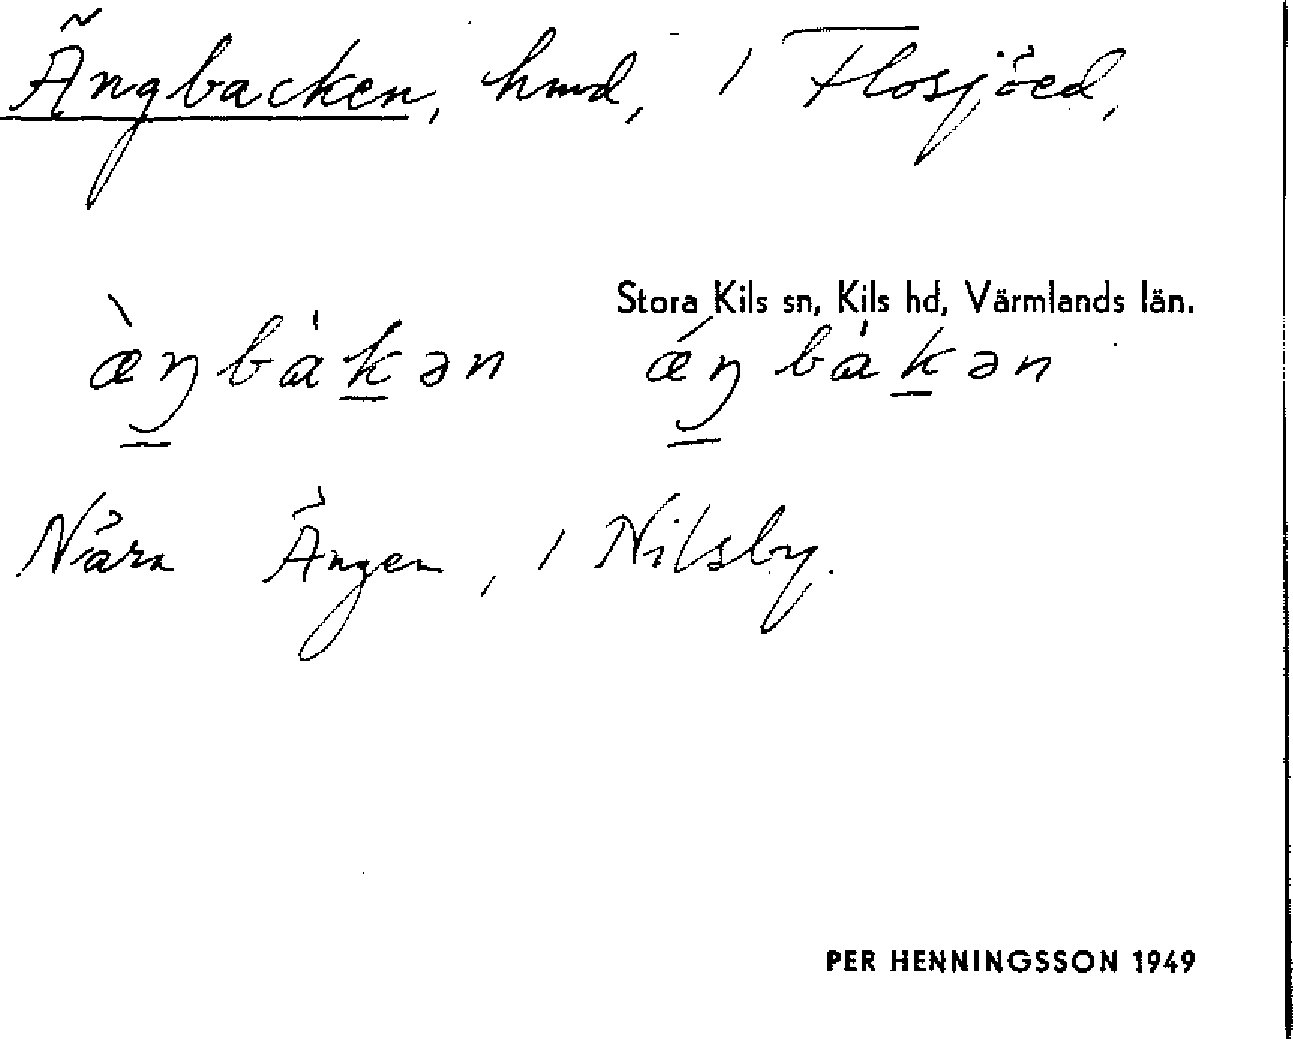 Ängbacken, hmd, i Flosjöed,
Stora Kils sn, Kils hd, Värmlands län.
æ̀ŋ̲bȧk̲ən ǽŋ̲bȧk̲ən
Nära Ängen, i Nilsby.
PER HENNINGSSON 1949